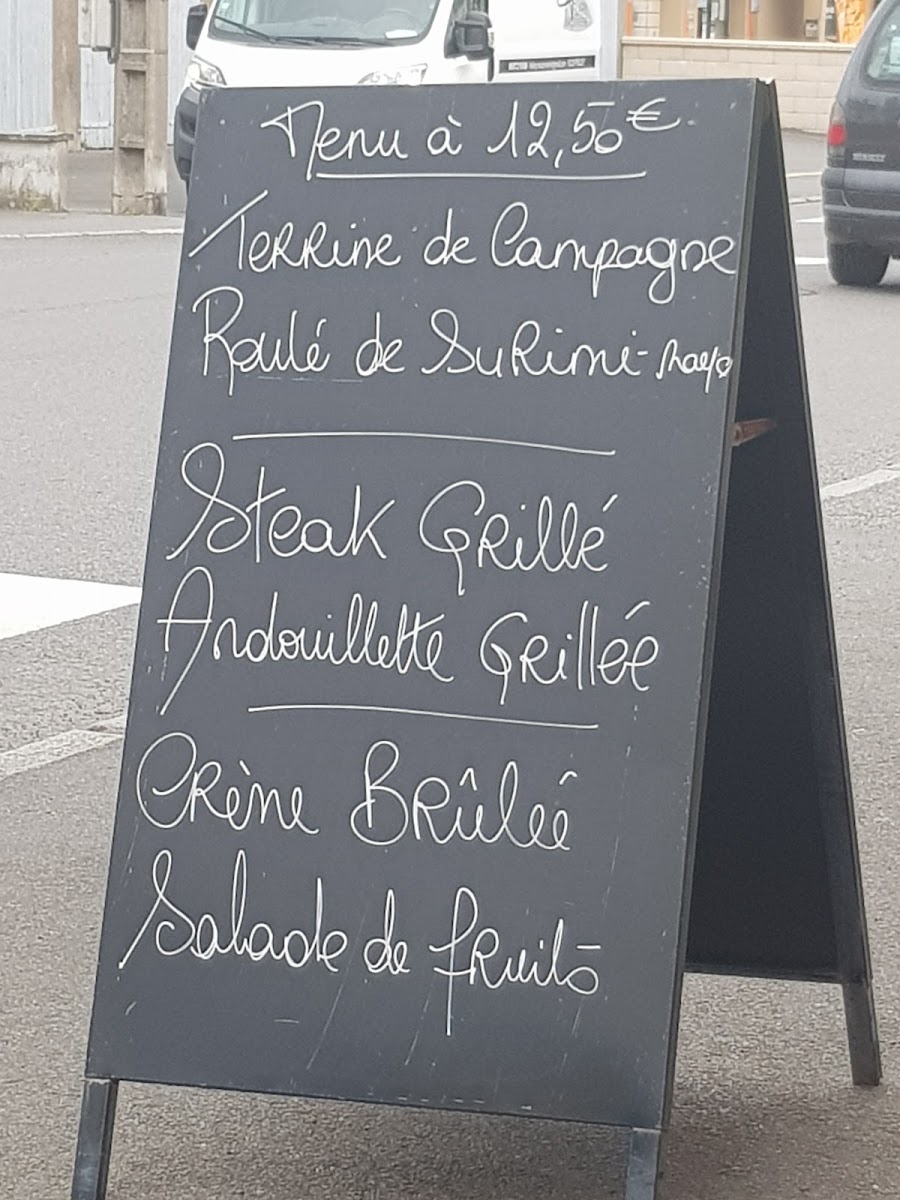 Menu à 12,50€
Terrine de Campagne
Roulé de Surimi-mayo
Steak Grillé
Andouillette Grillée
Crème Brûleé
Salade de fruits